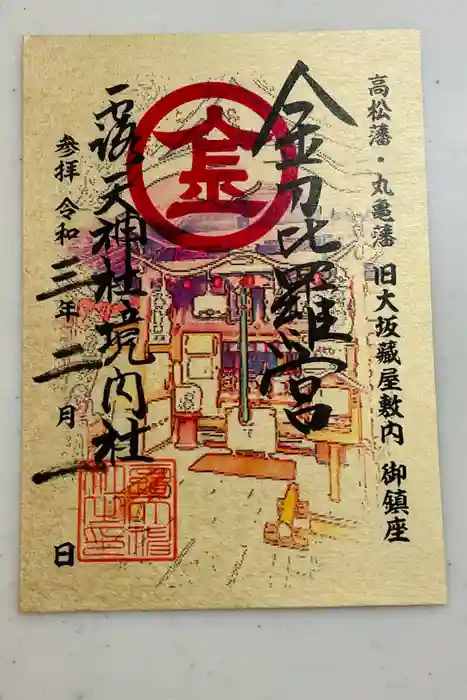 高松藩・丸亀藩 旧大坂藏屋敷内 御鎮座
金刀比羅宮
金
露天神社境内社
参拝 令和三年二月一日